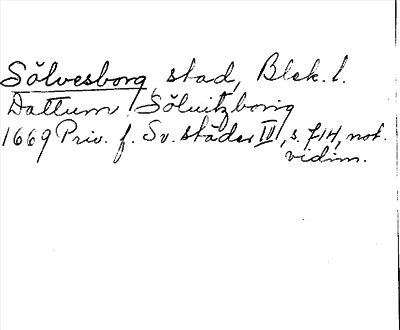 Sölvesborg, stad, Blek. l.
Dattum Söluitzborig
1669 Priv. f. Sv. städer IV, s. 714, not.
vidim.